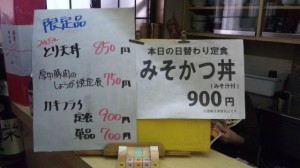 限定品
とり天丼 850円
しょうが焼定食 750円
カキフライ
定食 900円
単品 700円
本日の日替わり定食
みそかつ丼
(みそ汁付)
900円